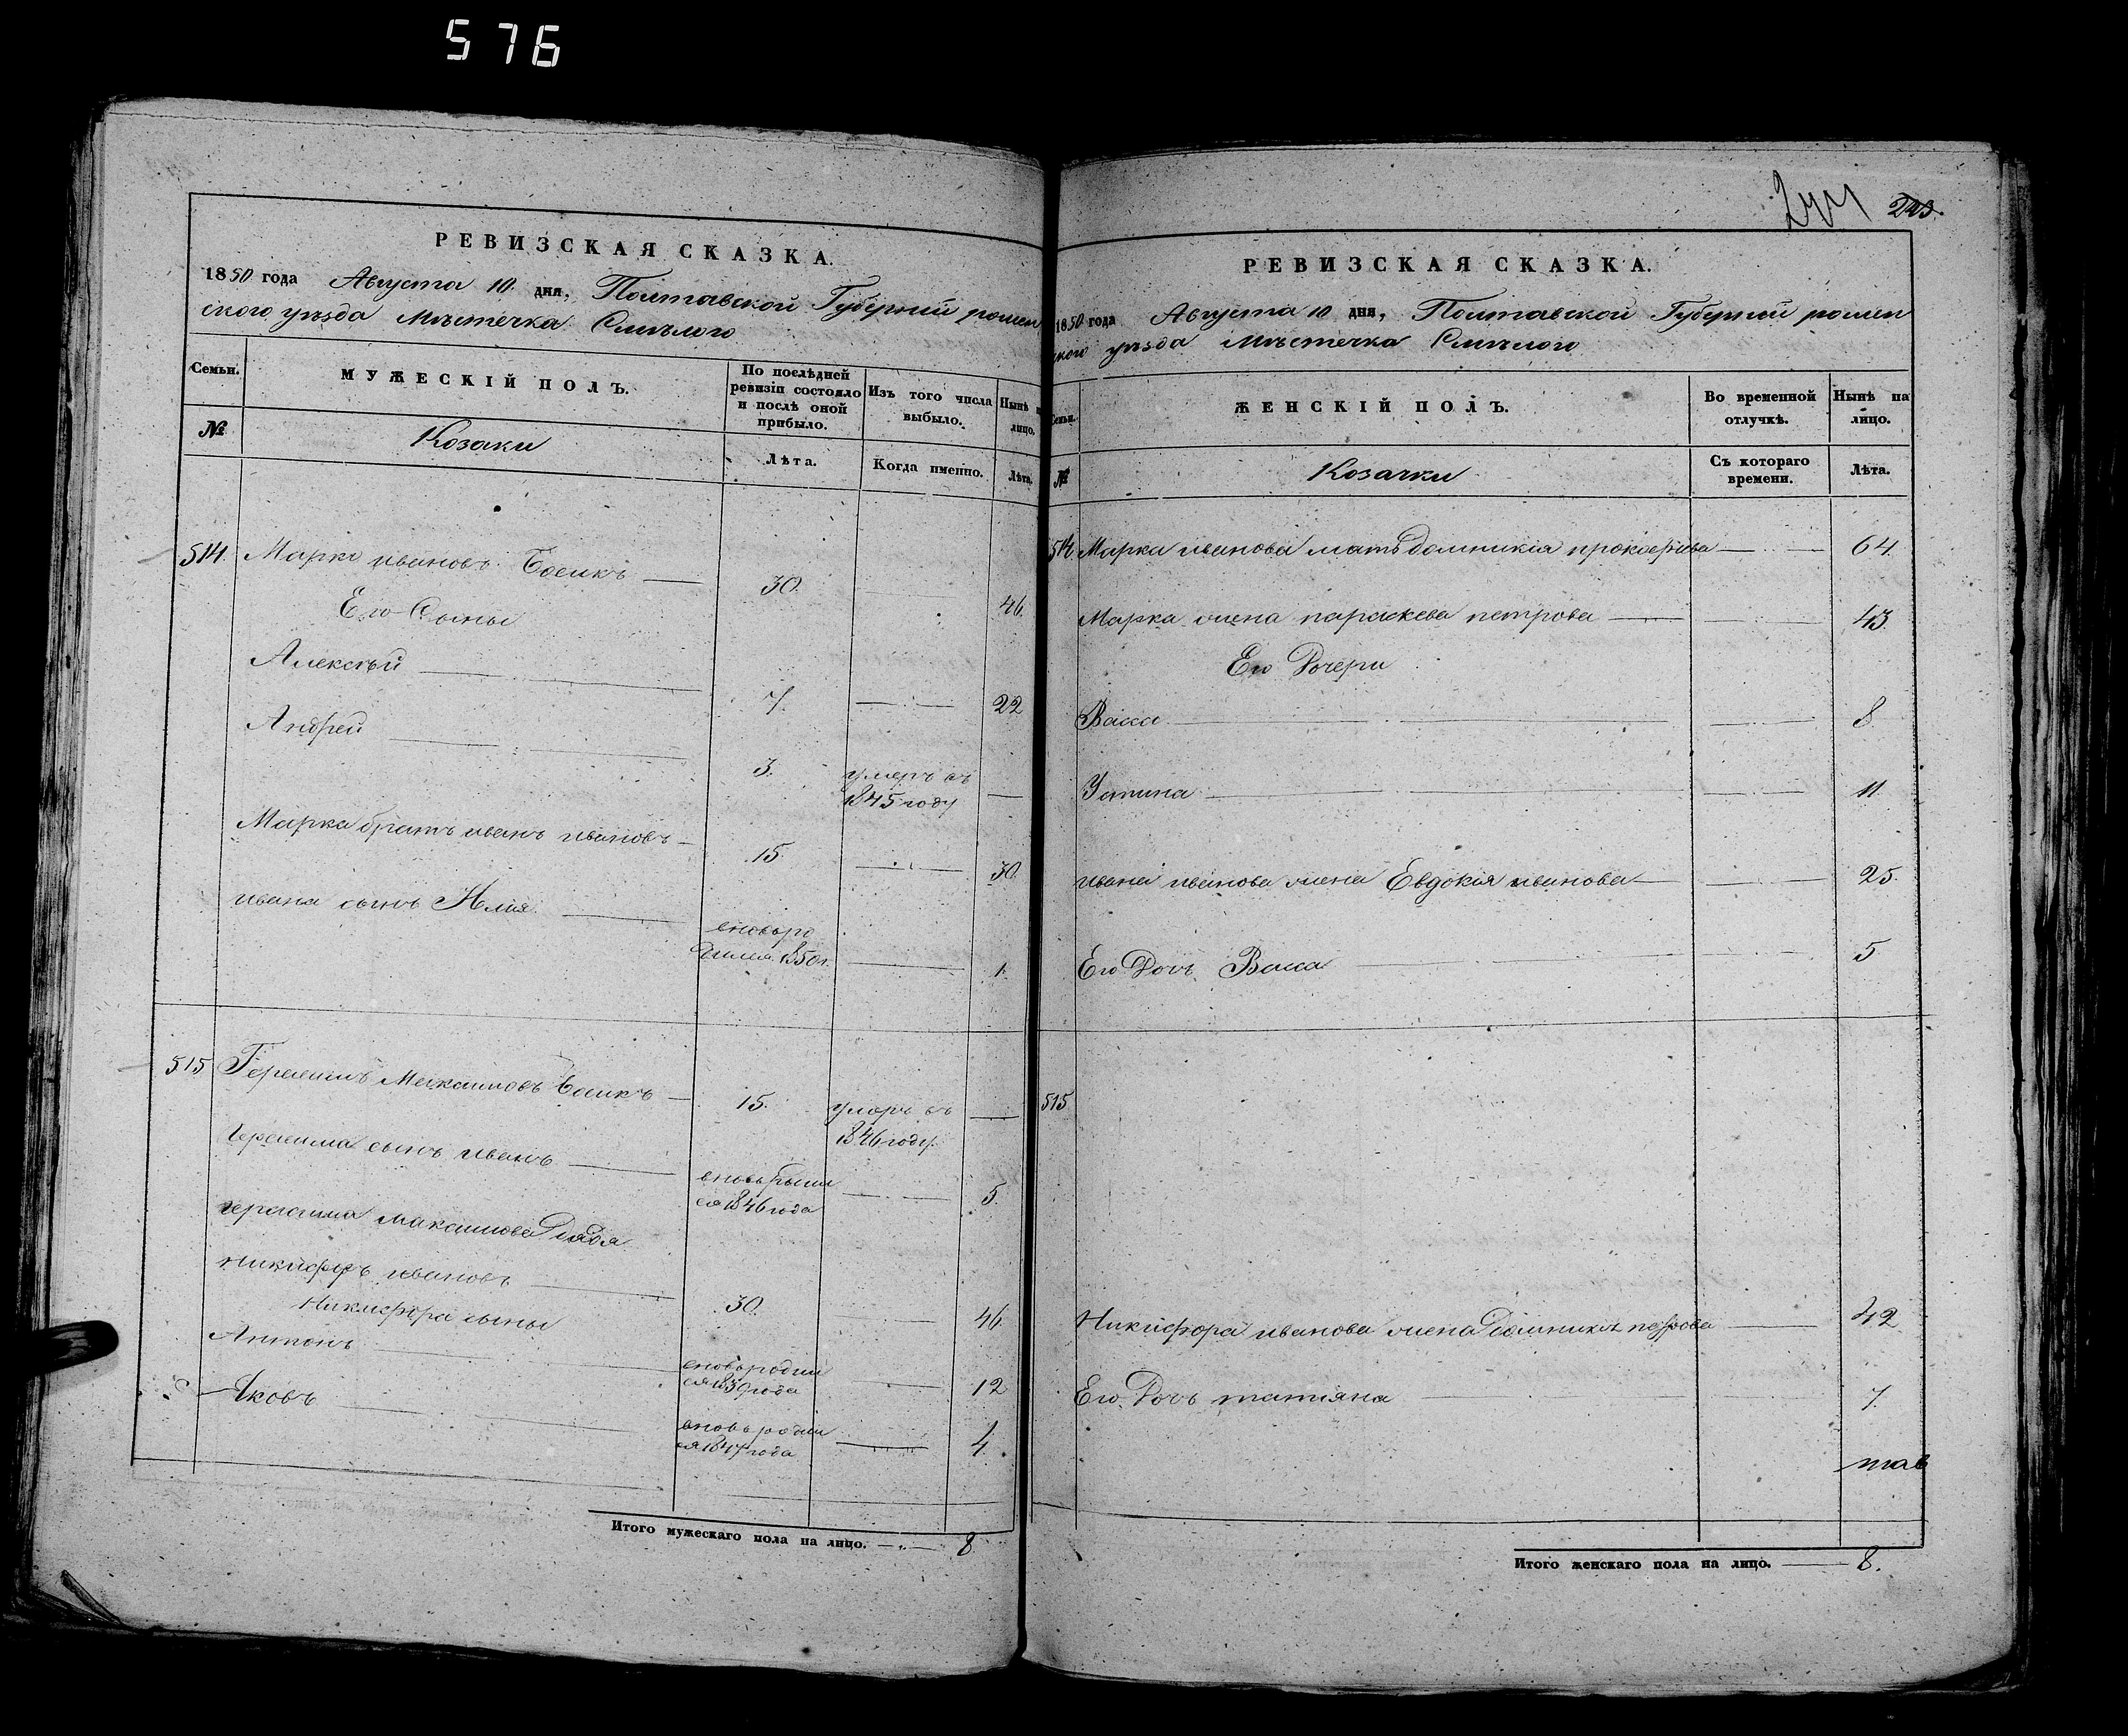 576
РЕВИЗСКАЯ СКАЗКА.
1850 года Августа 10 дня, Полтавской Губерніи ромен
ского уѣзда Мѣстечка Смѣлого
Семьи.
МУЖЕСКІЙ ПОЛЪ.
По послѣдней
ревизіи состояло
и послѣ оной
прибыло.
Изъ того числа
выбыло.
Нынѣ н
лицо.
№
Козаки
Лѣта.
Когда именно.
Лѣта.
514. Марко ивановъ 30. 46.
Его Сыны
Алексѣй 7. 22
Андрей 3. умеръ въ
1845 году
Марка братъ иванъ ивановъ 15. 30.
ивана сынъ Илія вновь ро
дился 1850 г. 1.
515 Герасимъ Максимовъ 15. умеръ въ
1846 году.
герасима сынъ иванъ вновь
ся 1846 года 5.
герасима максимова дядя
никифоръ ивановъ 30. 46.
Никифора сыны
Антонъ вновь родил
ся 1839 года 12
Яковъ вновь родил
ся 1847 года 4.
Итого мужескаго пола на лицо. 8
244 243.
РЕВИЗСКАЯ СКАЗКА.
1850 года Августа 10 дня, Полтавской Губерніи ромен
ского уѣзда Мѣстечка Смѣлого
Семьи.
ЖЕНСКІЙ ПОЛЪ.
Во временной
отлучкѣ.
Нынѣ на
лицо.
№
Козачки
Съ котораго
времени.
Лѣта.
514. Марка иванова мать домникія прокофіева 64.
Марка жена параскева петрова 43.
Его Дочери
Васса 8.
Устина 11.
ивана иванова жена Евдокія иванова 25.
Его Дочь Васса 5
515
Никифора иванова жена петрова 42
Его Дочь татіяна 7.
Итого женскаго пола на лицо. 8.